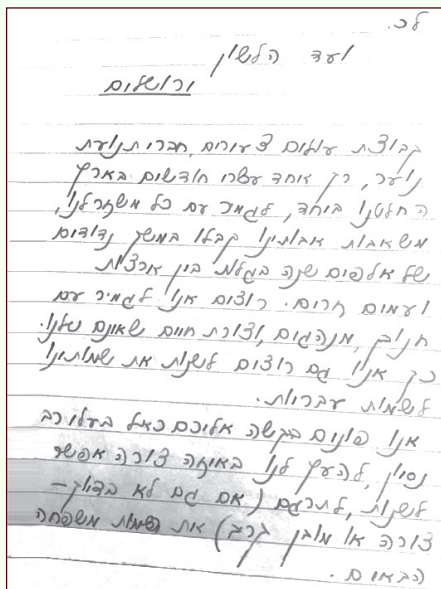 לכ.
ועד הלשון
ירושלים
קבוצת עולים צעורים, חברי תנועת
נוער, רק אחד עשר חודשים בארץ
החלטנו ביחד, לגמר עם כל מש
משאבות אבותינו קבלו במשך נדודים
של אלפים שנה בגלות בין ארצות
ועמים חרים. רוצים אנו לגמיר עם
חנוך, מנהגים, וצורת חיים שאינם שלנו.
כך אנו גם רוצים לשנות את שמותינו
לשמות עבריות.
אנו פונים בבקשה אליכם כאל בעלי רב
נסיון, להעץ לנו באיזה צורה אפשר
לשנות, לתרגם (אם גם לא בדיוק –
צורה או מובן קרב) את השמות משפחה
הבאים.